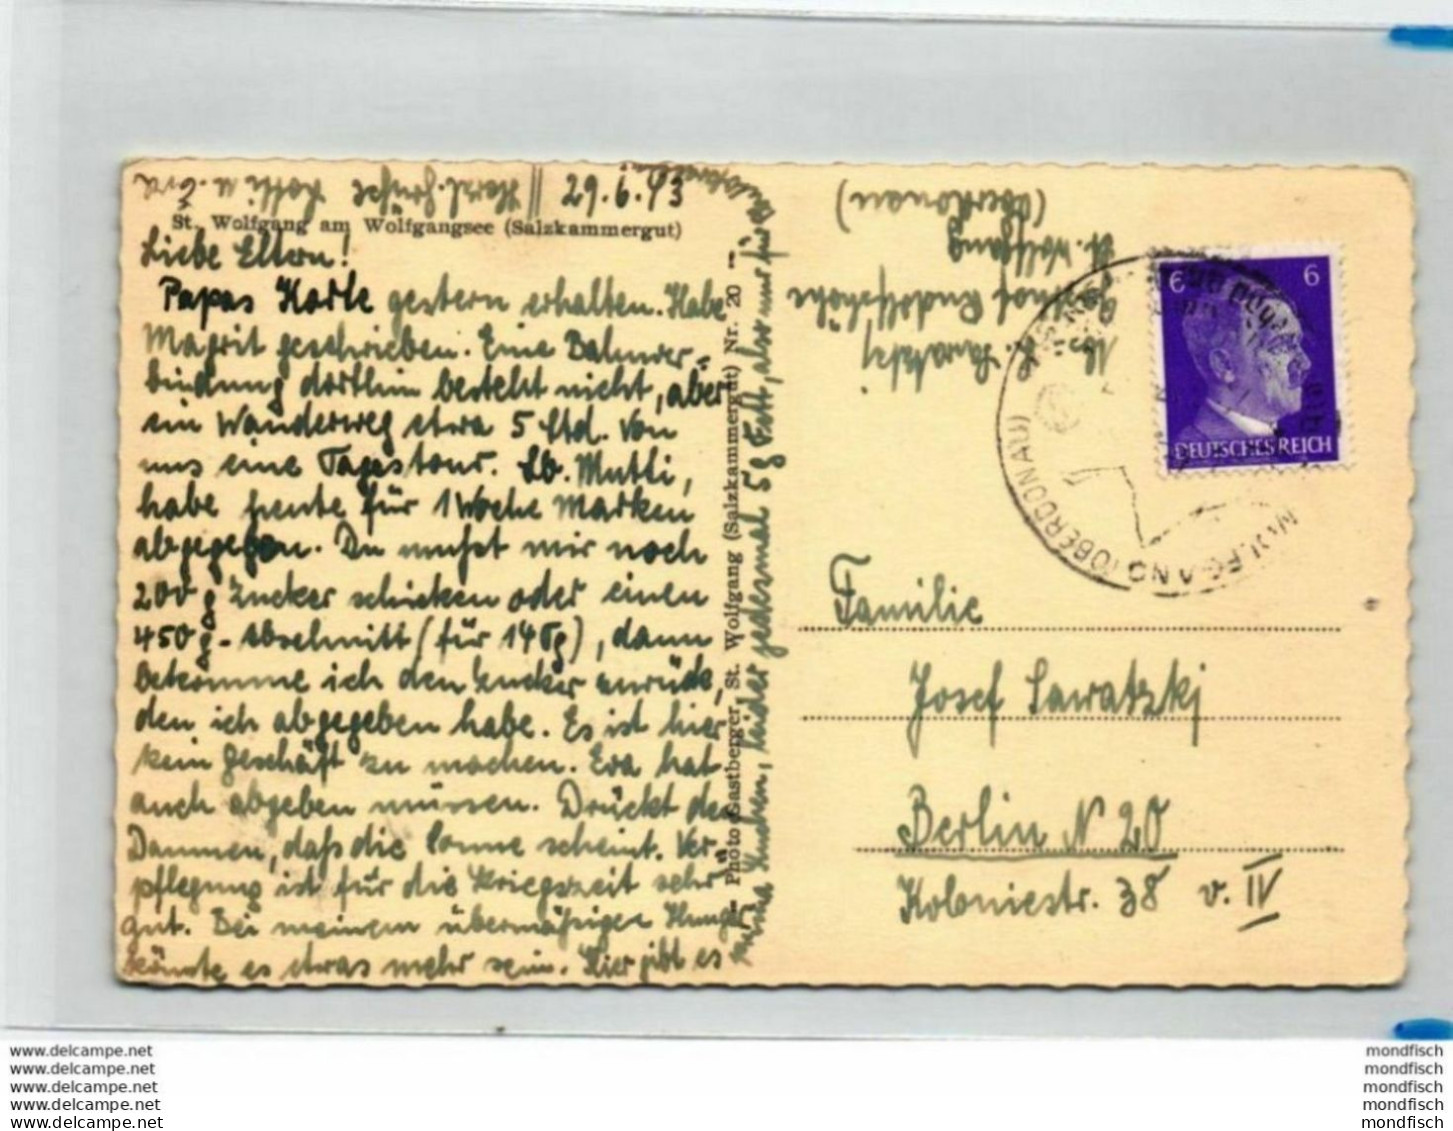 29.6.43
St. Wolfgang am Wolfgangsee (Salzkammergut)
Liebe Eltern!
Papas Karte gestern erhalten. Habe
Magrit geschrieben. Eine Bahnver-
bindung dorthin besteht nicht, aber
ein Wanderweg etwa 5 Std. Von
uns eine Tagestour. Lb. Mutti,
habe heute für 1 Woche Marken
abgegeben. Du mußt mir noch
200 g Zucker schicken oder einen
450 g-Abschnitt (für 140g), dann
bekomme ich den Zucker zurück,
den ich abgegeben habe. Es ist hier
kein Geschäft zu machen. Eva hat
auch abgeben müssen. Drückt den
Daumen, daß die Sonne scheint. Ver-
pflegung ist für die Kriegszeit sehr
gut. Bei meinem übermäßigen Hunger
könnte es etwas mehr sein. Hier gibt es
Kuchen, leider jedesmal 5 g Fett, also nur für
Herzl. Grüße
u. Eva
Photo Gastberger, St. Wolfgang (Salzkammergut) Nr. 20
Abs. Sawatzki
Gasthof Rudolfshöhe
St. Wolfgang
(Oberdonau)
6 6
DEUTSCHES REICH
WOLFGANG (OBERDONAU)
Familie
Josef Sawatzki
Berlin N 20
Koloniestr. 38 v. IV
www.delcampe.net
www.delcampe.net
www.delcampe.net
www.delcampe.net
www.delcampe.net
mondfisch
mondfisch
mondfisch
mondfisch
mondfisch